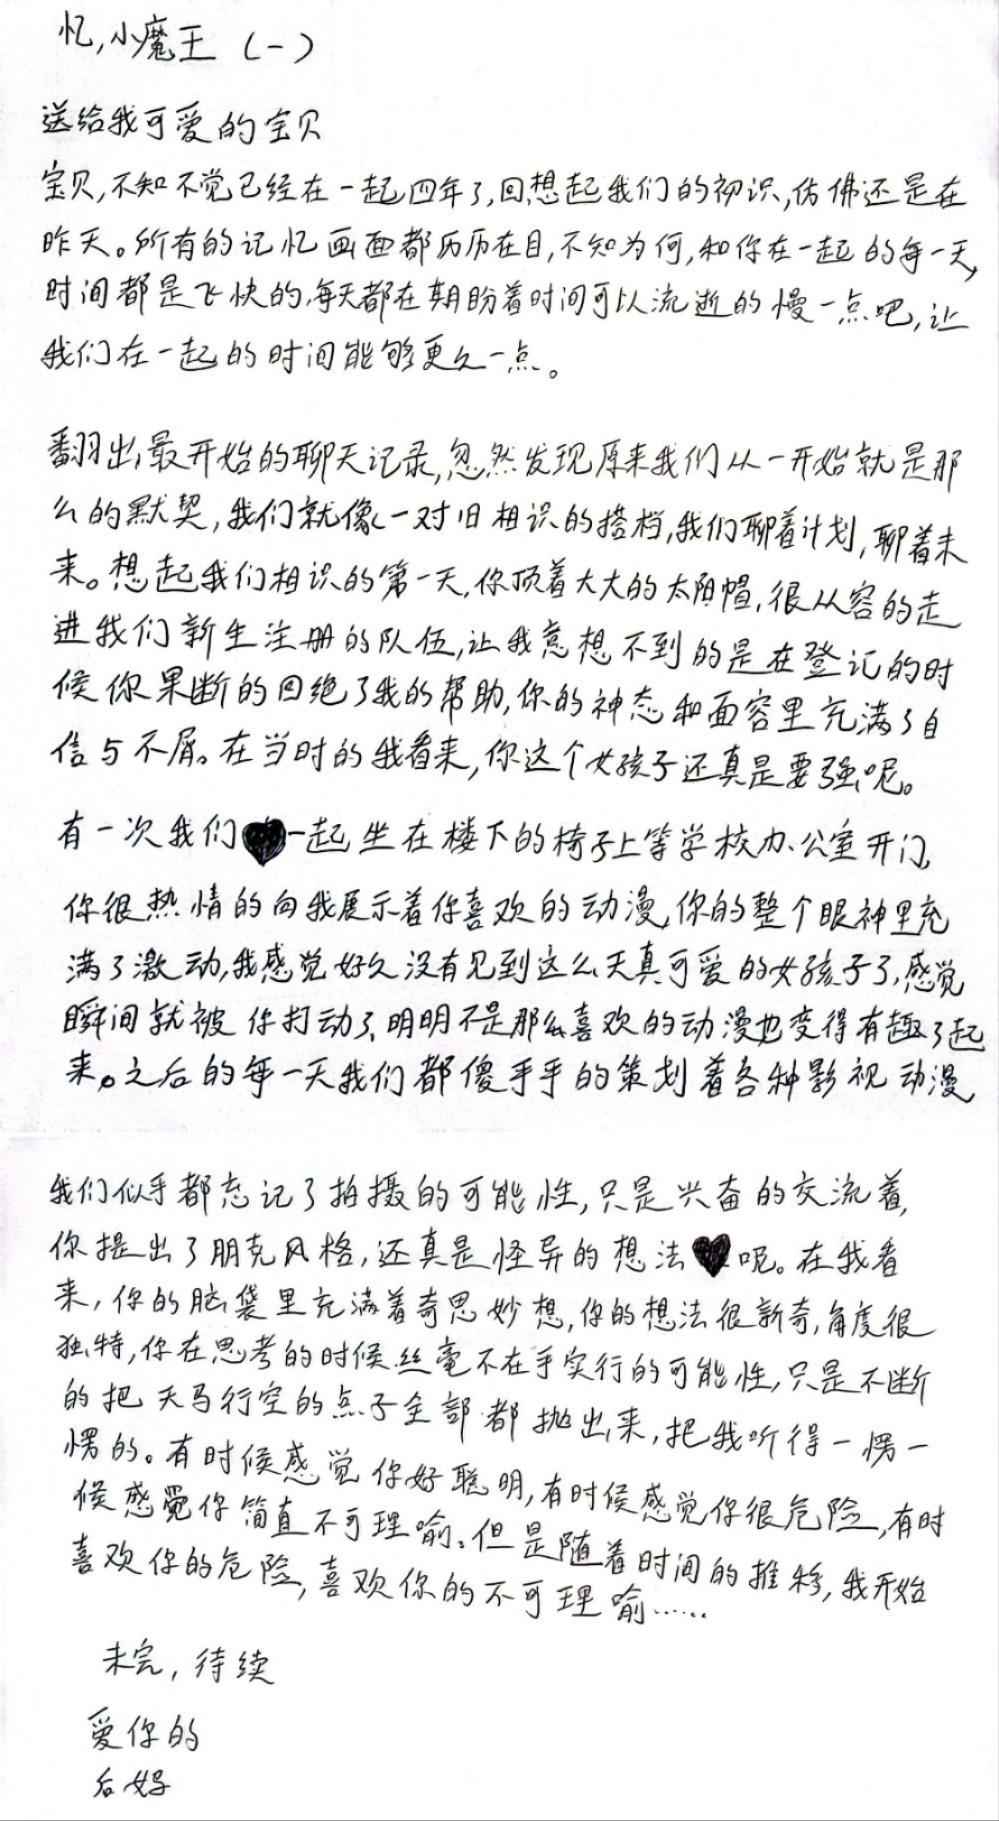 忆,小魔王(一)
送给我可爱的宝贝
宝贝,不知不觉已经在一起四年了,回想起我们的初识,仿佛还是在
昨天。所有的记忆画面都历历在目,不知为何,和你在一起的每一天,
时间都是飞快的,每天都在期盼着时间可以流逝的慢一点吧,让
我们在一起的时间能够更久一点。
翻出最开始的聊天记录,忽然发现原来我们从一开始就是那
么的默契,我们就像一对旧相识的搭档,我们聊着计划,聊着未
来。想起我们相识的第一天,你顶着大大的太阳帽,很从容的走
进我们新生注册的队伍,让我意想不到的是在登记的时
候你果断的回绝了我的帮助,你的神态和面容里充满了自
信与不屑。在当时的我看来,你这个女孩子还真是要强呢。
有一次我们一起坐在楼下的椅子上等学校办公室开门,
你很热情的向我展示着你喜欢的动漫,你的整个眼神里充
满了激动,我感觉好久没有见到这么天真可爱的女孩子了,感觉
瞬间就被你打动了,明明不是那么喜欢的动漫也变得有趣了起
来。之后的每一天我们都傻乎乎的策划着各种影视动漫
我们似乎都忘记了拍摄的可能性,只是兴奋的交流着,
你提出了朋克风格,还真是怪异的想法呢。在我看
来,你的脑袋里充满着奇思妙想,你的想法很新奇,角度很
独特,你在思考的时候丝毫不在乎实行的可能性,只是不断
的把天马行空的点子全部都抛出来,把我听得一愣一
愣的。有时候感觉你好聪明,有时候感觉你很危险,有时
候感觉你简直不可理喻。但是随着时间的推移,我开始
喜欢你的危险,喜欢你的不可理喻……
未完,待续
爱你的